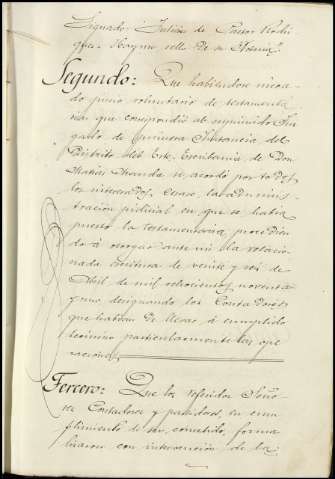 Signado: Julián de Pastor Rodri
guez = Hay un sello de su Notaría.
Segundo: Que habiéndose incoa-
do juicio voluntario de testamenta
ría que correspondió al suprimido Juz
gado de primera Instancia del
Distrito del Este, Escribanía de Don
Matías Aranda se acordó por todos
los interesados cesase la adminis
tración judicial en que se había
puesto la testamentaría, procedién
do á otorgar ante mí la relacio
nada escritura de veinte y seis de
Abril de mil ochocientos noventa
y uno designando los Contadores
que habían de llevar á cumplido
término particularmente las ope
raciones.
Tercero: Que los referidos Seño-
res Contadores y partidores, en cum
plimiento de su cometido, forma
lizaron con intervención de la